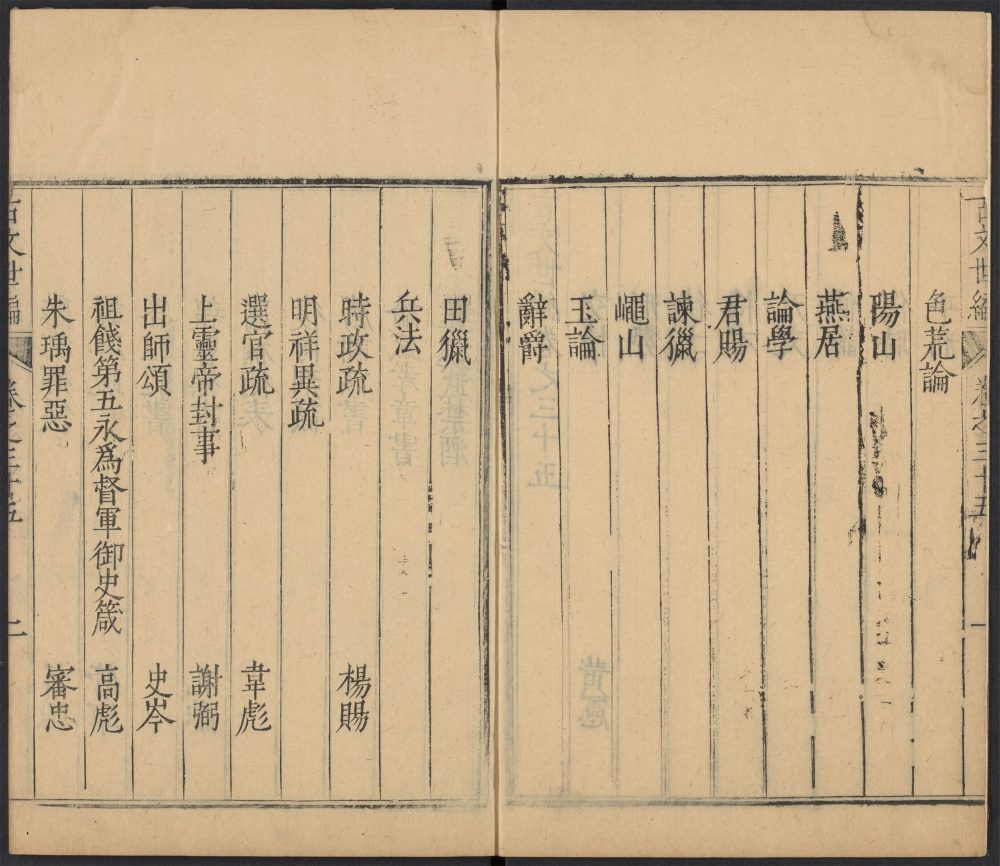 古文世編 卷之三十五 一
色荒論
陽山
燕居
論學
君賜
諫獵
嶇山
玉論
辭爵
田獵
兵法
時政疏 楊賜
明祥異疏
選官疏 韋彪
上靈帝封事 謝弼
出師頌 史岑
祖餞第五永爲督軍御史箴 高彪
朱瑀罪惡 審忠
古文世編 卷之三十五 二